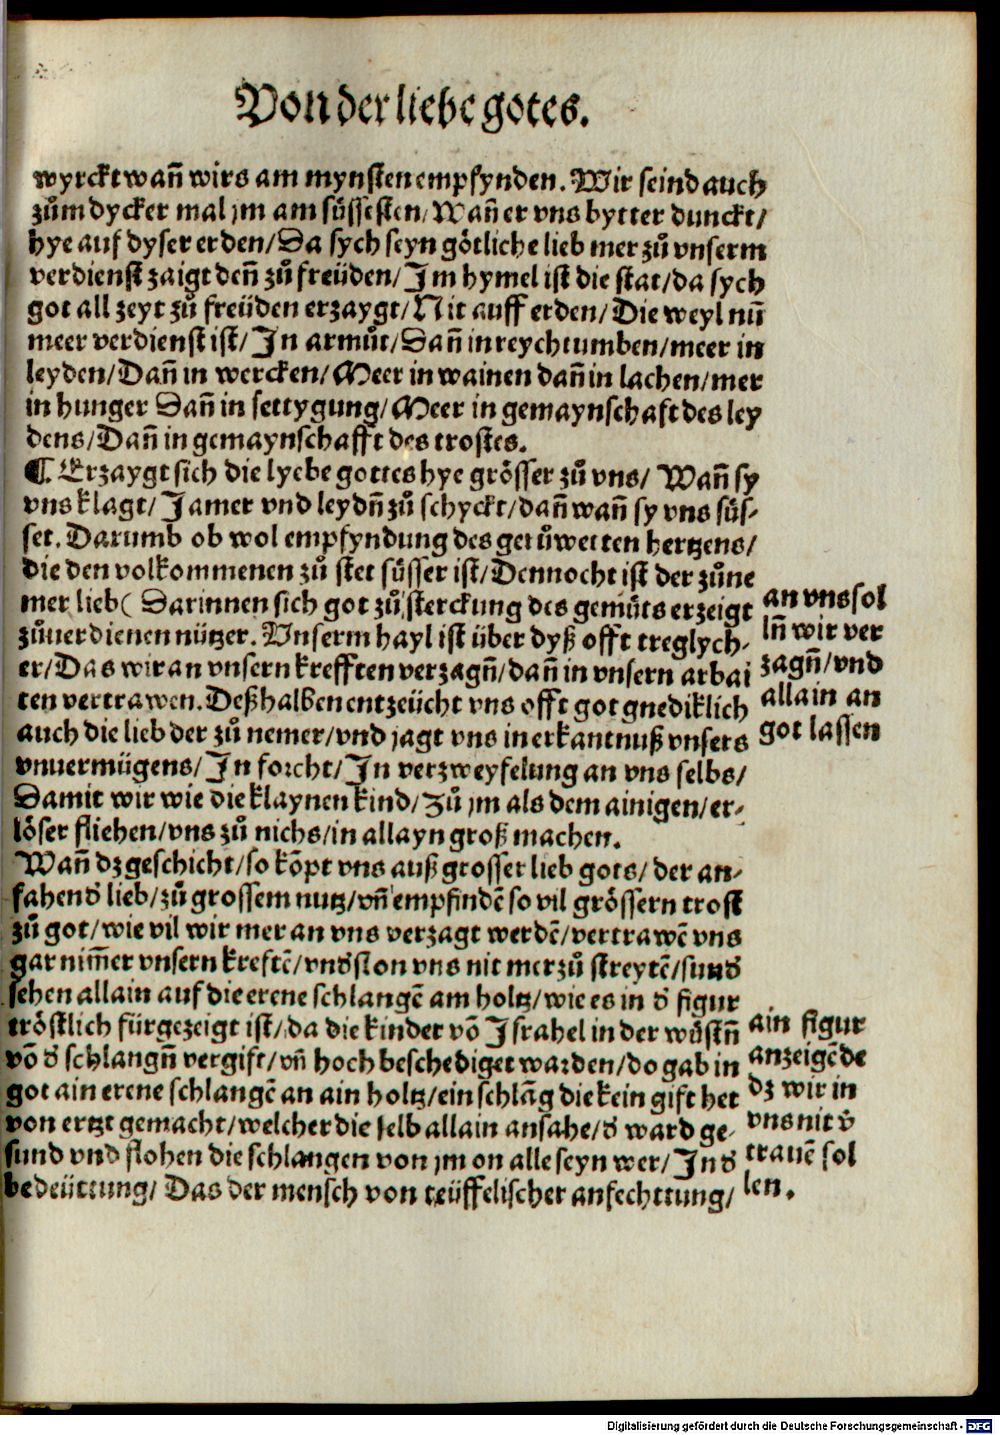 Von der liebe gotes.
wyrckt wan̄ wirs am mynsten empfynden. Wir seind auch
zům dycker mal jm am süssesten/ Wan̄ er vns bytter dunckt/
hye auf dyser erden/ Da sych seyn götliche lieb mer zů vnserm
verdienst zaigt den̄ zů freüden/ Im hymel ist die stat/ da sych
got all zeyt zů freüden erzaygt/ Nit auff erden/ Die weyl nū
meer verdienst ist/ In armůt/ Dan̄ in reychtumben/ meer in
leyden/ Dan̄ in wercken/ Meer in wainen dan̄ in lachen/ mer
in hunger Dan̄ in settygung/ Meer in gemaynschaft des ley
dens/ Dan̄ in gemaynschafft des trostes.
¶ Erzaygt sich die lyebe gottes hye grösser zů vns/ Wan̄ sy
vns klagt/ Jamer vnd leydn̄ zů schyckt/ dan̄ wan̄ sy vns süs-
set. Darumb ob wol empfyndung des getůwetten hertzens/
die den volkommenen zů stet süsser ist/ Dennocht ist der zůne
mer lieb( Darinnen sich got zů sterckung des gemüts erzeigt
zůuerdienen nützer. Vnserm hayl ist über dyß offt treglych-
er/ Das wir an vnsern krefften verzagn̄/ dan̄ in vnsern arbai
ten vertrawen. Deßhalben entzeücht vns offt got gnediklich
auch die lieb der zů nemer/ vnd jagt vns in erkantnuß vnsers
vnuermügens/ In forcht/ In verzweyfelung an vns selbs/
Damit wir wie die klaynen kind/ Zů jm als dem ainigen/ er-
löser fliehen/ vns zů nichs/ in allayn groß machen.
Wan̄ dz geschicht/ so kōpt vns auß grosser lieb gots/ der an-
fahend̄ lieb/ zů grossem nutz/ vn̄ empfindē so vil grössern trost
zů got/ wie vil wir mer an vns verzagt werdē/ vertrawē vns
gar nim̄er vnsern kreftē/ vnd̄ston vns nit mer zů streytē/ sund̄
sehen allain auf die erene schlangē am holtz/ wie es in d̄ figur
tröstlich fürgezeigt ist/ da die kinder vō Israhel in der wüstn̄
vō d̄ schlangn̄ vergift/ vn̄ hoch beschediget warden/ do gab in
got ain erene schlangē an ain holtz/ ein schlāg die kein gift het
von ertzt gemacht/ welcher die selb allain ansahe/ d̄ ward ge-
sund vnd flohen die schlangen von jm on alle seyn wer/ In d̄
bedeüttung/ Das der mensch von teüffelischer anfechttung/
an vns sol
ln̄ wir ver
zagn̄/ vnd
allain an
got lassen
ain figur
anzeigē de
dz wir in
vns nit v̄
trauē sol
len.
Digitalisierung gefördert durch die Deutsche Forschungsgemeinschaft - DFG